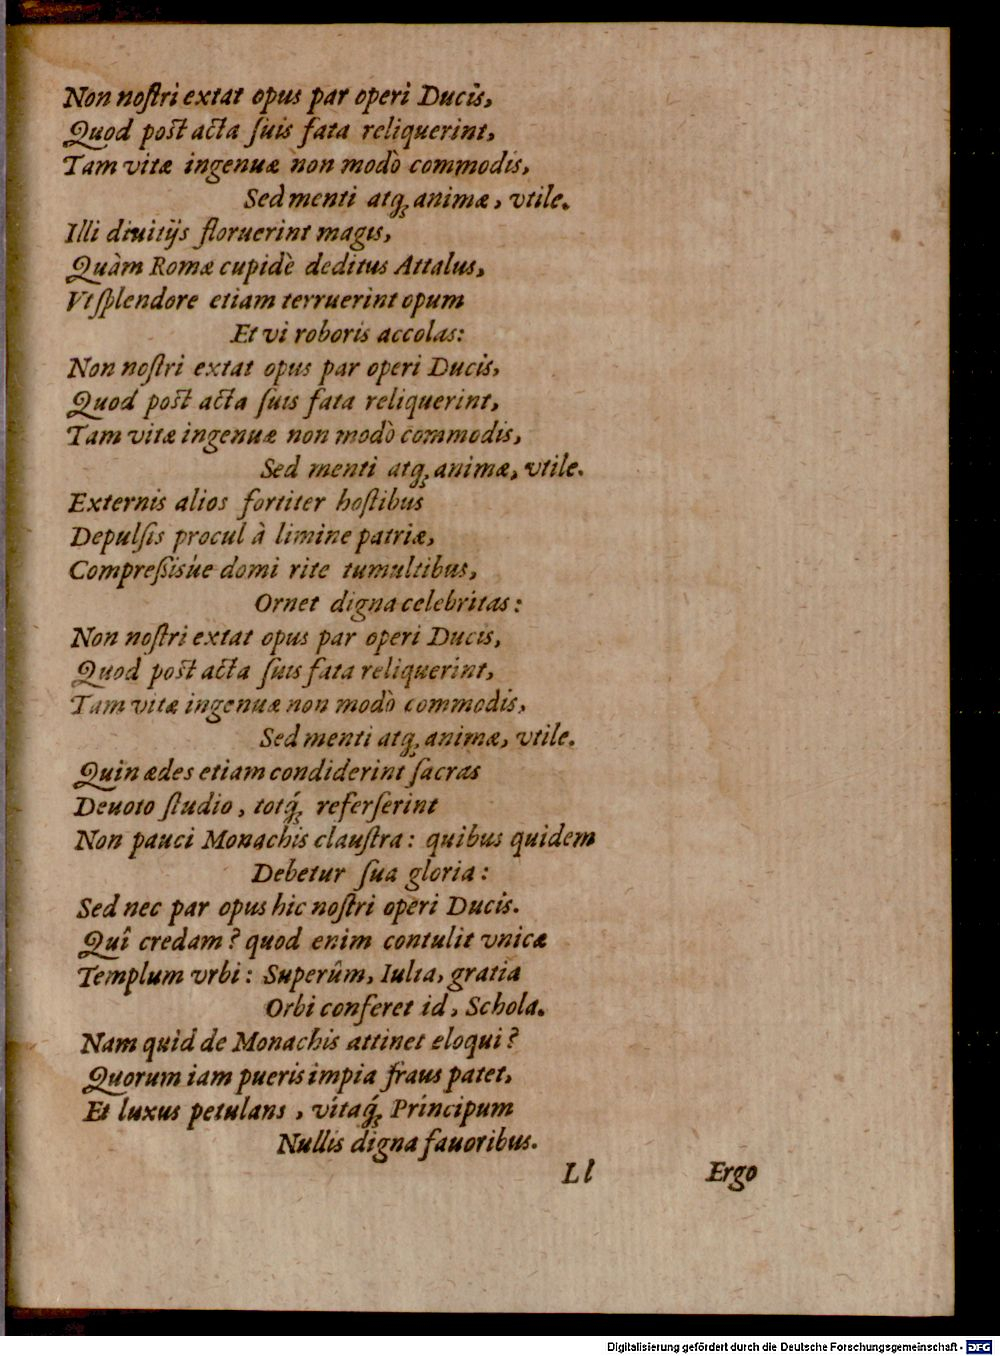 Non noſtri extat opus par operi Ducis,
Quod poſt acta ſuis fata reliquerint,
Tam vitæ ingenuæ non modò commodis,
Sed menti atq́ꝫ animæ, vtile.
Illi diuitijs floruerint magis,
Quàm Romæ cupidè deditus Attalus,
Vt ſplendore etiam terruerint opum
Et vi roboris accolas:
Non noſtri extat opus par operi Ducis,
Quod poſt acta ſuis fata reliquerint,
Tam vitæ ingenuæ non modò commodis,
Sed menti atqꝫ animæ, vtile.
Externis alios fortiter hoſtibus
Depulſis procul à limine patriæ,
Compreſsisúe domi rite tumultibus,
Ornet digna celebritas:
Non noſtri extat opus par operi Ducis,
Quod poſt acta ſuis fata reliquerint,
Tam vitæ ingenuæ non modò commodis,
Sed menti atqꝫ animæ, vtile.
Quin ædes etiam condiderint ſacras
Deuoto ſtudio, totq́ꝫ referſerint
Non pauci Monachis clauſtra: quibus quidem
Debetur ſua gloria:
Sed nec par opus hic noſtri operi Ducis.
Quî credam? quod enim contulit vnicæ
Templum vrbi: Superûm, Iulia, gratia
Orbi conferet id, Schola.
Nam quid de Monachis attinet eloqui?
Quorum iam pueris impia fraus patet,
Et luxus petulans, vitaq́ꝫ Principum
Nullis digna fauoribus.
Ll Ergo
Digitalisierung gefördert durch die Deutsche Forschungsgemeinschaft - DFG